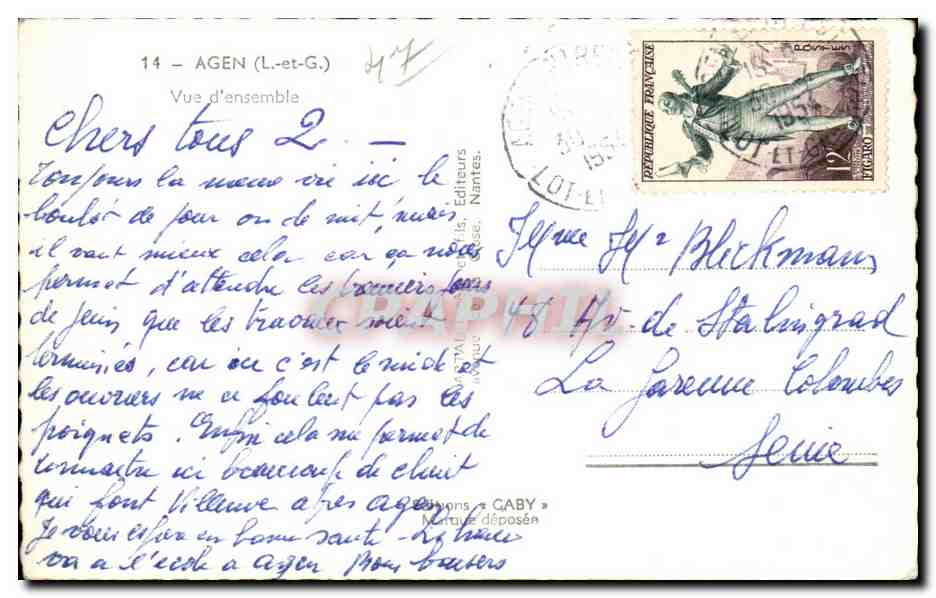 14 — AGEN (L.-et-G.)
47
Vue d'ensemble
Chers tous 2. —
Toujours la même vie ici le
boulot de jour ou de nuit, mais
il vaut mieux cela car ça nous
permet d'attendre les premiers jours
de juin que les travaux soient
terminés, car ici c'est le midi et
les ouvriers ne se foulent pas les
poignets. Enfin cela me permet de
connaître ici beaucoup de
qui font Villeneuve après Agen
Je vous espère en bonne santé -
va à l'école à Agen Bons baisers
Editeurs
Nantes.
Editions « GABY »
Marque déposée
CRAPHIL
REPUBLIQUE FRANÇAISE
POSTES
12
FIGARO
AGEN
1954
LOT-ET-G
Mme Mr Bleckmann
48 Av. de Stalingrad
La Garenne Colombes
Seine